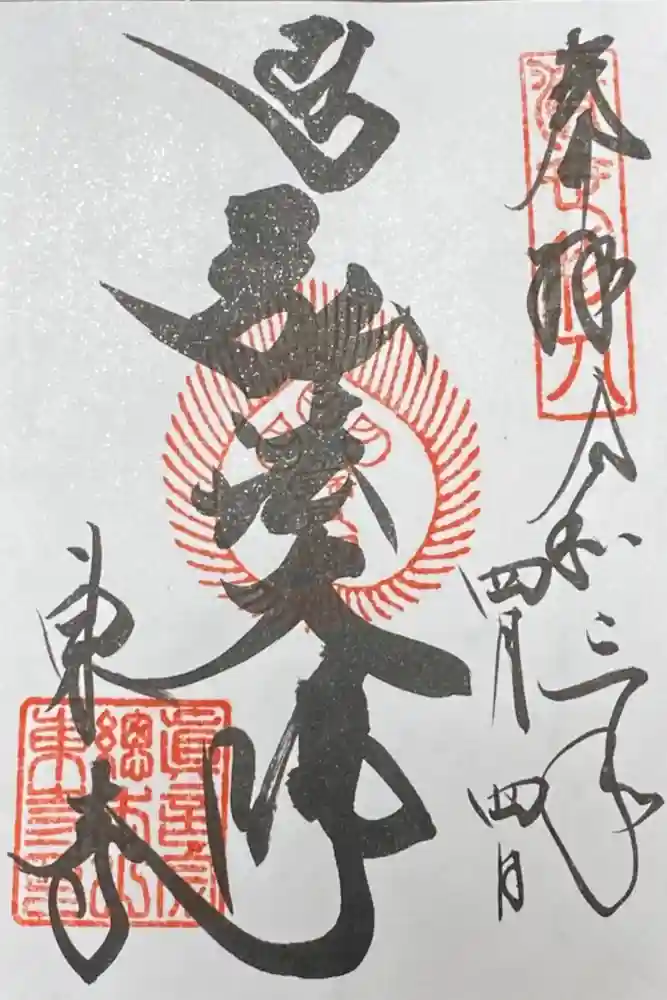 奉拝
令和三年
四月四日
弘法大師
東寺
眞言宗
總本山